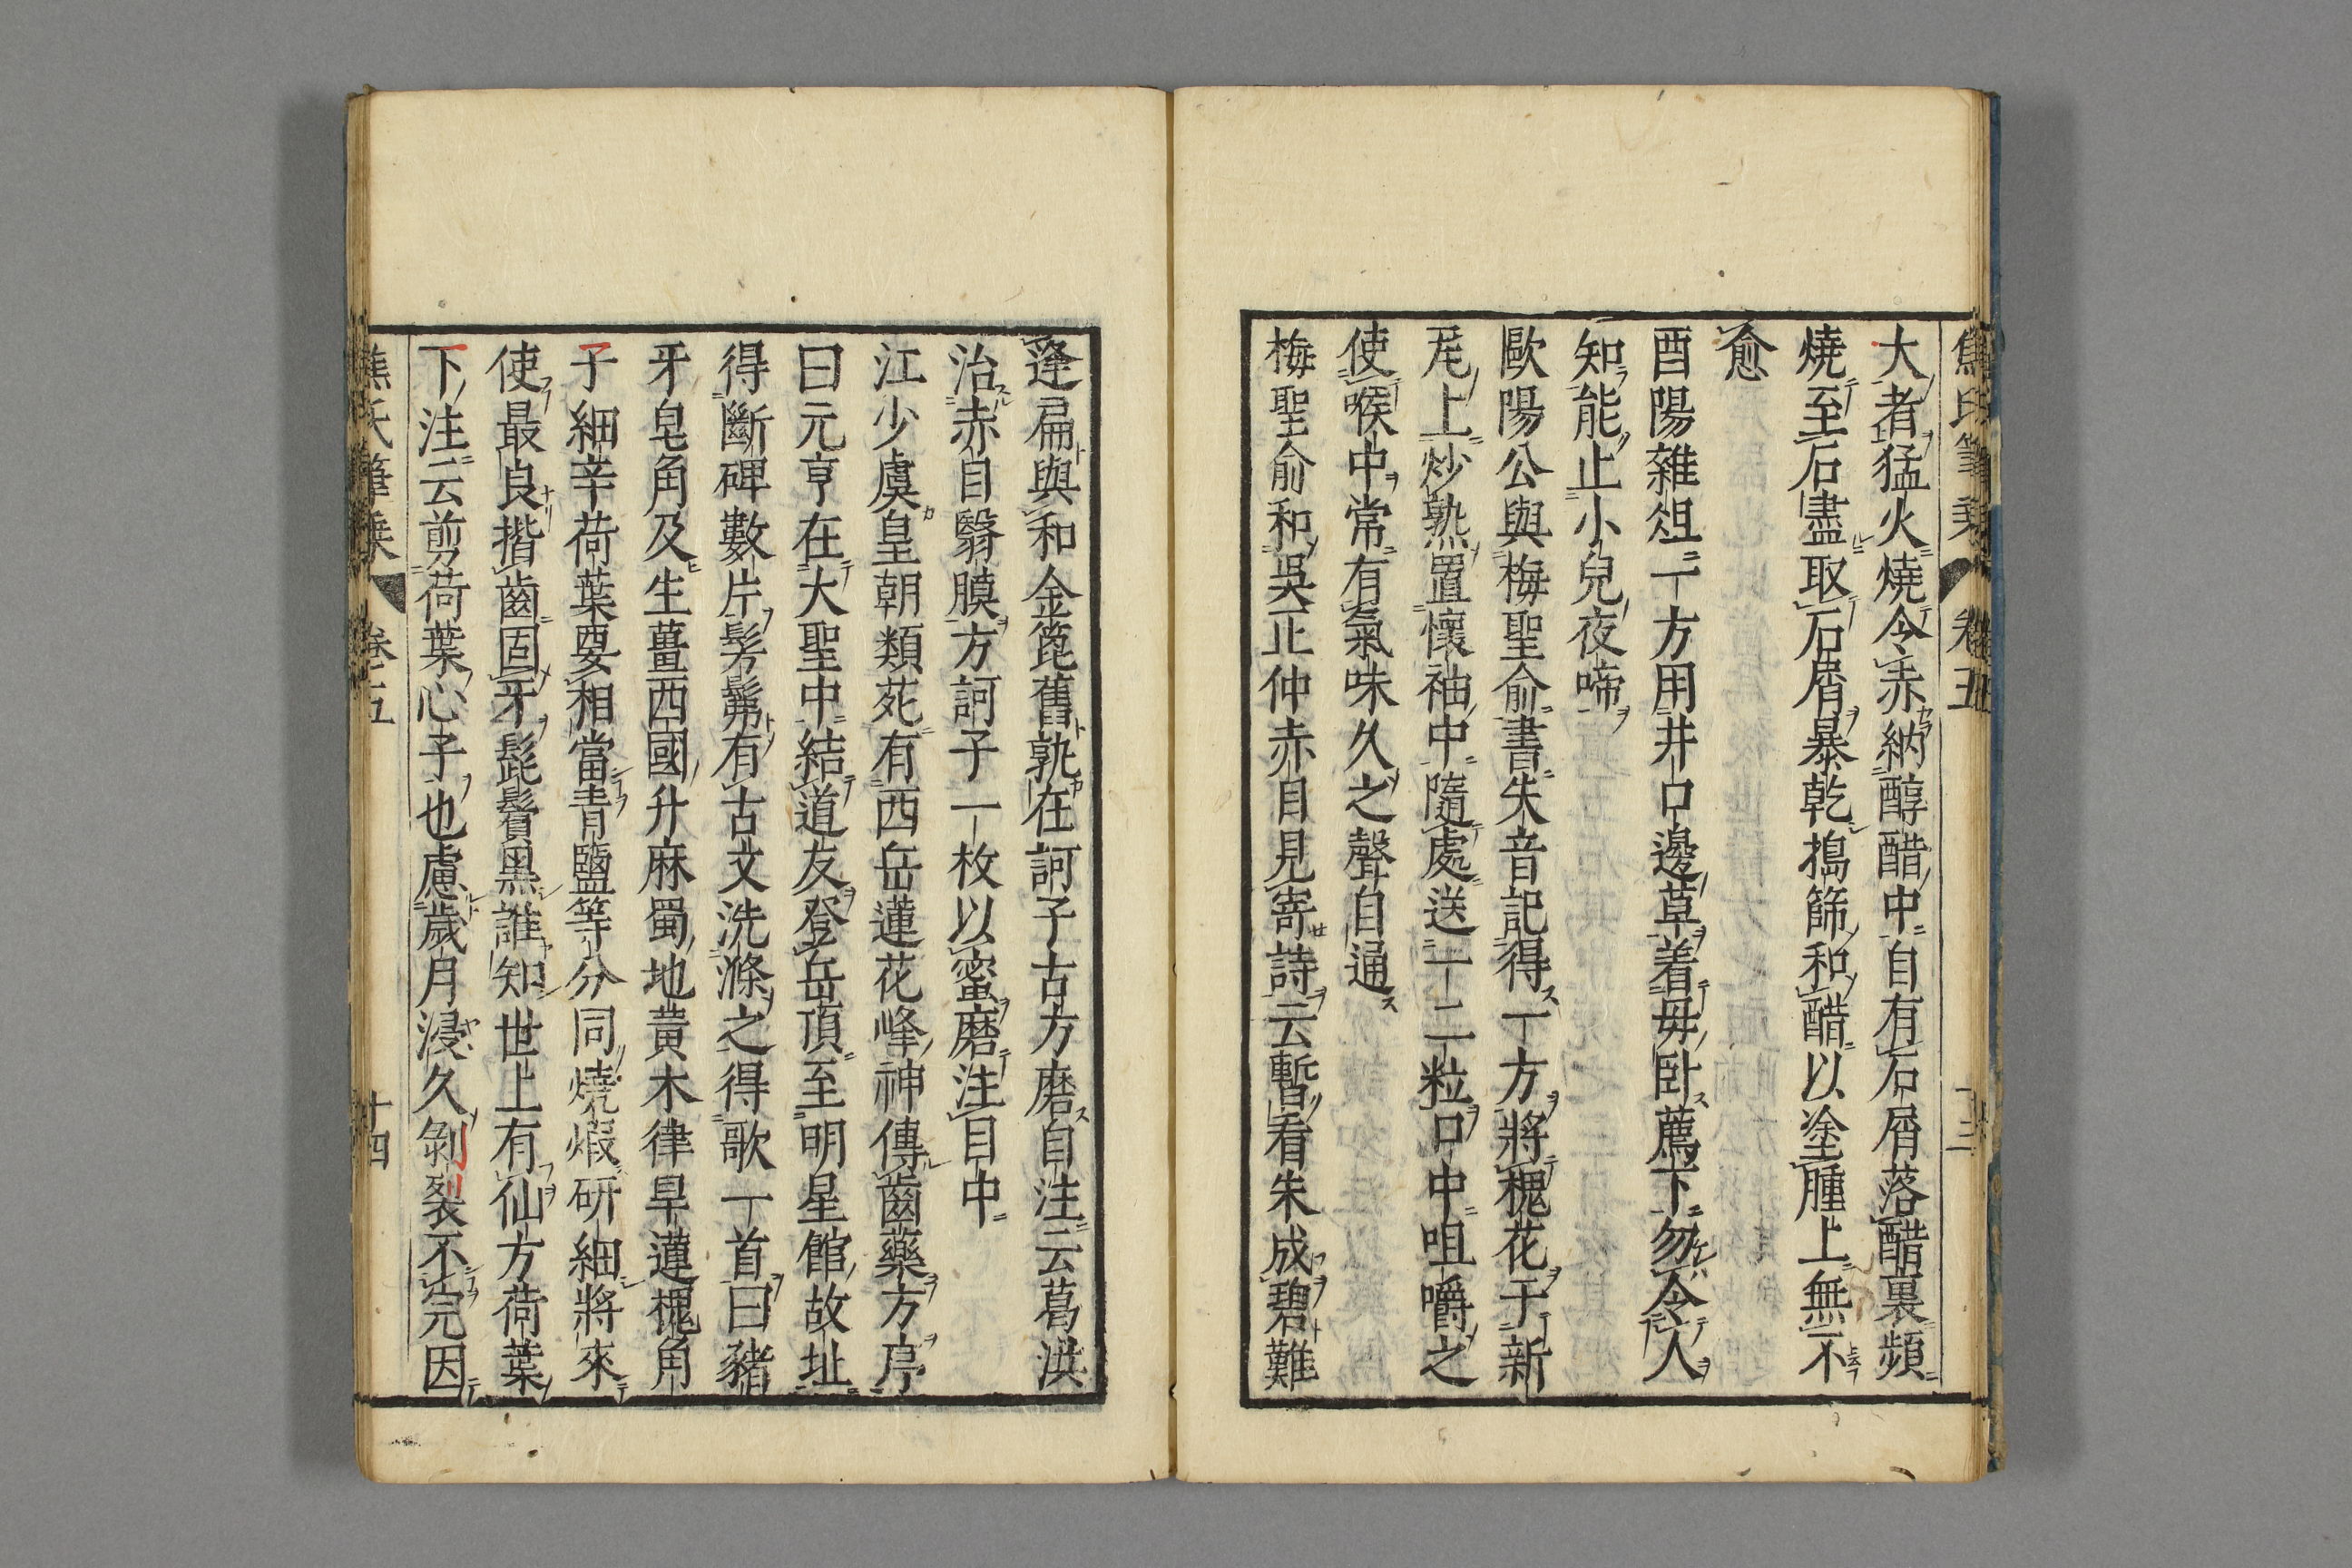 焦氏筆乘 卷五 十三
大者猛火燒令赤納醇醋中自有石屑落醋裏頻
燒至石盡取石屑暴乾搗篩和醋以塗腫上無不
愈
酉陽雜俎一方用井口邊草着毋卧薦下勿令人
知能止小兒夜啼
歐陽公與梅聖俞書失音記得一方將槐花于新
瓦上炒熟置懷袖中隨處送一二粒口中咀嚼之
使喉中常有氣味久之聲自通
梅聖俞和吳正仲赤目見寄詩云暫看朱成碧難
逢扁與和金篦舊孰在訶子古方磨自注云葛洪
治赤目翳膜方訶子一枚以蜜磨注目中
江少虞皇朝類苑有西岳蓮花峰神傳齒藥方序
曰元亨在大聖中結道友登岳頂至明星館故址
得斷碑數片髣髴有古文洗滌之得歌一首曰豬
牙皂角及生薑西國升麻蜀地黃木律旱蓮槐角
子細辛荷葉要相當青鹽等分同燒煅研細將來
使最良揩齒固牙髭鬢黑誰知世上有仙方荷葉
下注云剪荷葉心子也慮歲月浸久剝裂不完因
焦氏筆乘 卷五 十四